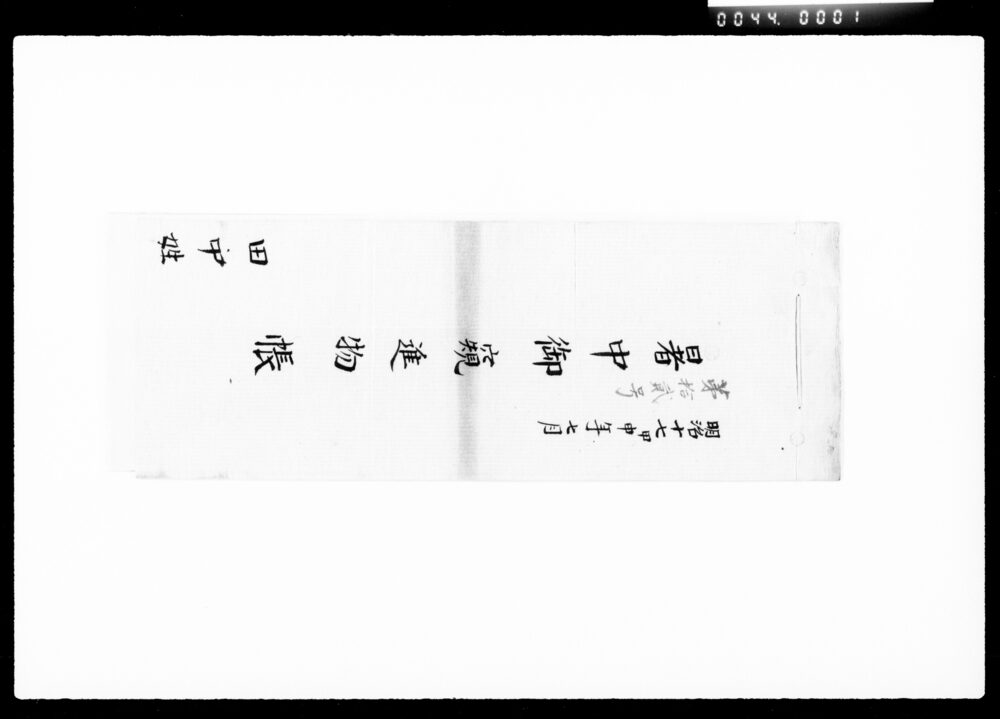 0044. 0001
明治十七甲申年七月
第拾貳号
暑中御窺進物帳
田中姓